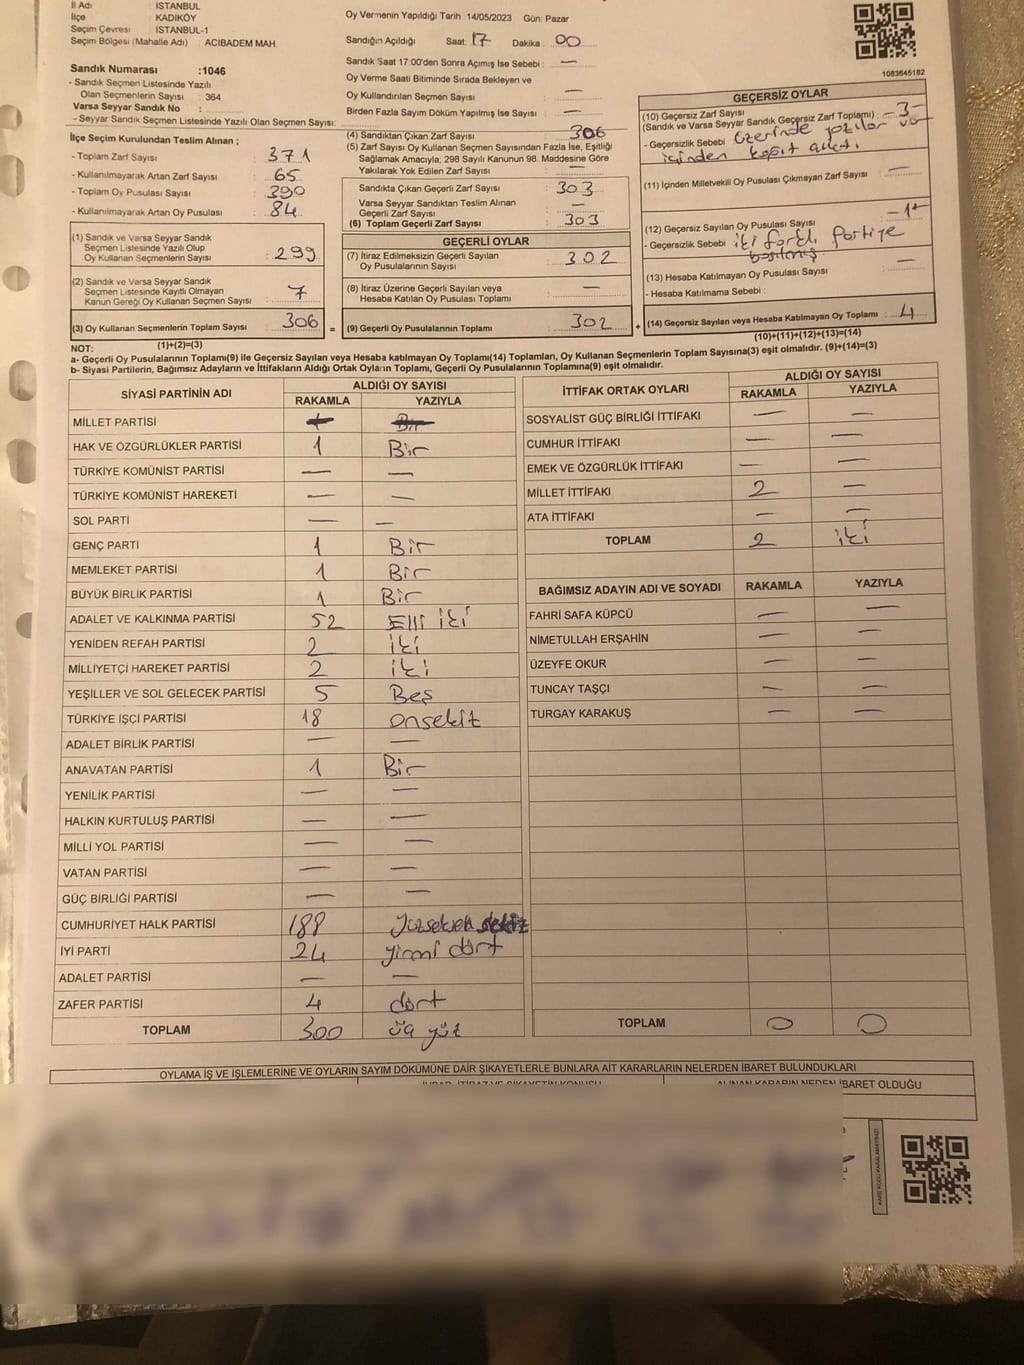 İl Adı : İSTANBUL
İlçe KADIKÖY
Seçim Çevresi İSTANBUL-1
Seçim Bölgesi (Mahalle Adı) : ACIBADEM MAH.
Oy Vermenin Yapıldığı Tarih :14/05/2023 Gün: Pazar
Sandığın Açıldığı Saat: 17 Dakika : 00
Sandık Saat 17:00'den Sonra Açımış İse Sebebi : —
Oy Verme Saati Bitiminde Sırada Bekleyen ve
Oy Kullandırılan Seçmen Sayısı : —
Birden Fazla Sayım Döküm Yapılmış İse Sayısı : —
Sandık Numarası :1046
- Sandık Seçmen Listesinde Yazılı
Olan Seçmenlerin Sayısı : 364
Varsa Seyyar Sandık No :
- Seyyar Sandık Seçmen Listesinde Yazılı Olan Seçmen Sayısı:
İlçe Seçim Kurulundan Teslim Alınan ;
- Toplam Zarf Sayısı : 371
- Kullanılmayarak Artan Zarf Sayısı : 65
- Toplam Oy Pusulası Sayısı : 390
- Kullanılmayarak Artan Oy Pusulası : 84
(1) Sandık ve Varsa Seyyar Sandık
Seçmen Listesinde Yazılı Olup
Oy Kullanan Seçmenlerin Sayısı : 299
(2) Sandık ve Varsa Seyyar Sandık
Seçmen Listesinde Kayıtlı Olmayan
Kanun Gereği Oy Kullanan Seçmen Sayısı : 7
(3) Oy Kullanan Seçmenlerin Toplam Sayısı : 306 =
(1)+(2)=(3)
(4) Sandıktan Çıkan Zarf Sayısı : 306
(5) Zarf Sayısı Oy Kullanan Seçmen Sayısından Fazla İse, Eşitliği
Sağlamak Amacıyla; 298 Sayılı Kanunun 98. Maddesine Göre
Yakılarak Yok Edilen Zarf Sayısı : —
Sandıkta Çıkan Geçerli Zarf Sayısı : 303
Varsa Seyyar Sandıktan Teslim Alınan
Geçerli Zarf Sayısı : —
(6) Toplam Geçerli Zarf Sayısı : 303
GEÇERLİ OYLAR
(7) İtiraz Edilmeksizin Geçerli Sayılan
Oy Pusulalarının Sayısı : 302
(8) İtiraz Üzerine Geçerli Sayılan veya
Hesaba Katılan Oy Pusulası Toplamı : —
(9) Geçerli Oy Pusulalarının Toplamı : 302 +
1083645182
GEÇERSİZ OYLAR
(10) Geçersiz Zarf Sayısı
(Sandık ve Varsa Seyyar Sandık Geçersiz Zarf Toplamı) : -3-
- Geçersizlik Sebebi : üzerinde yazılar var
içinden kağıt
(11) İçinden Milletvekili Oy Pusulası Çıkmayan Zarf Sayısı : —
(12) Geçersiz Sayılan Oy Pusulası Sayısı : -1-
- Geçersizlik Sebebi : iki farklı Partiye
basılmış
(13) Hesaba Katılmayan Oy Pusulası Sayısı : —
- Hesaba Katılmama Sebebi :
(14) Geçersiz Sayılan veya Hesaba Katılmayan Oy Toplamı : 4
(10)+(11)+(12)+(13)=(14)
NOT:
a- Geçerli Oy Pusulalarının Toplamı(9) ile Geçersiz Sayılan veya Hesaba katılmayan Oy Toplamı(14) Toplamları, Oy Kullanan Seçmenlerin Toplam Sayısına(3) eşit olmalıdır. (9)+(14)=(3)
b- Siyasi Partilerin, Bağımsız Adayların ve İttifakların Aldığı Ortak Oyların Toplamı, Geçerli Oy Pusulalarının Toplamına(9) eşit olmalıdır.
SİYASİ PARTİNİN ADI
ALDIĞI OY SAYISI
RAKAMLA YAZIYLA
MİLLET PARTİSİ 1 Bir
HAK VE ÖZGÜRLÜKLER PARTİSİ 1 Bir
TÜRKİYE KOMÜNİST PARTİSİ — —
TÜRKİYE KOMÜNİST HAREKETİ — —
SOL PARTİ — —
GENÇ PARTİ 1 Bir
MEMLEKET PARTİSİ 1 Bir
BÜYÜK BİRLİK PARTİSİ 1 Bir
ADALET VE KALKINMA PARTİSİ 52 Elli iki
YENİDEN REFAH PARTİSİ 2 iki
MİLLİYETÇİ HAREKET PARTİSİ 2 iki
YEŞİLLER VE SOL GELECEK PARTİSİ 5 Beş
TÜRKİYE İŞÇİ PARTİSİ 18 onsekiz
ADALET BİRLİK PARTİSİ — —
ANAVATAN PARTİSİ 1 Bir
YENİLİK PARTİSİ — —
HALKIN KURTULUŞ PARTİSİ — —
MİLLİ YOL PARTİSİ — —
VATAN PARTİSİ — —
GÜÇ BİRLİĞİ PARTİSİ — —
CUMHURİYET HALK PARTİSİ 188 yüzseksen sekiz
İYİ PARTİ 24 yirmi dört
ADALET PARTİSİ — —
ZAFER PARTİSİ 4 dört
TOPLAM 300 üç yüz
İTTİFAK ORTAK OYLARI
ALDIĞI OY SAYISI
RAKAMLA YAZIYLA
SOSYALİST GÜÇ BİRLİĞİ İTTİFAKI — —
CUMHUR İTTİFAKI — —
EMEK VE ÖZGÜRLÜK İTTİFAKI — —
MİLLET İTTİFAKI 2 —
ATA İTTİFAKI — —
TOPLAM 2 iki
BAĞIMSIZ ADAYIN ADI VE SOYADI RAKAMLA YAZIYLA
FAHRİ SAFA KÜPCÜ — —
NİMETULLAH ERŞAHİN — —
ÜZEYFE OKUR — —
TUNCAY TAŞÇI — —
TURGAY KARAKUŞ — —
TOPLAM 0 0
OYLAMA İŞ VE İŞLEMLERİNE VE OYLARIN SAYIM DÖKÜMÜNE DAİR ŞİKAYETLERLE BUNLARA AİT KARARLARIN NELERDEN İBARET BULUNDUKLARI
ALINAN KARARIN NEDEN İBARET OLDUĞU